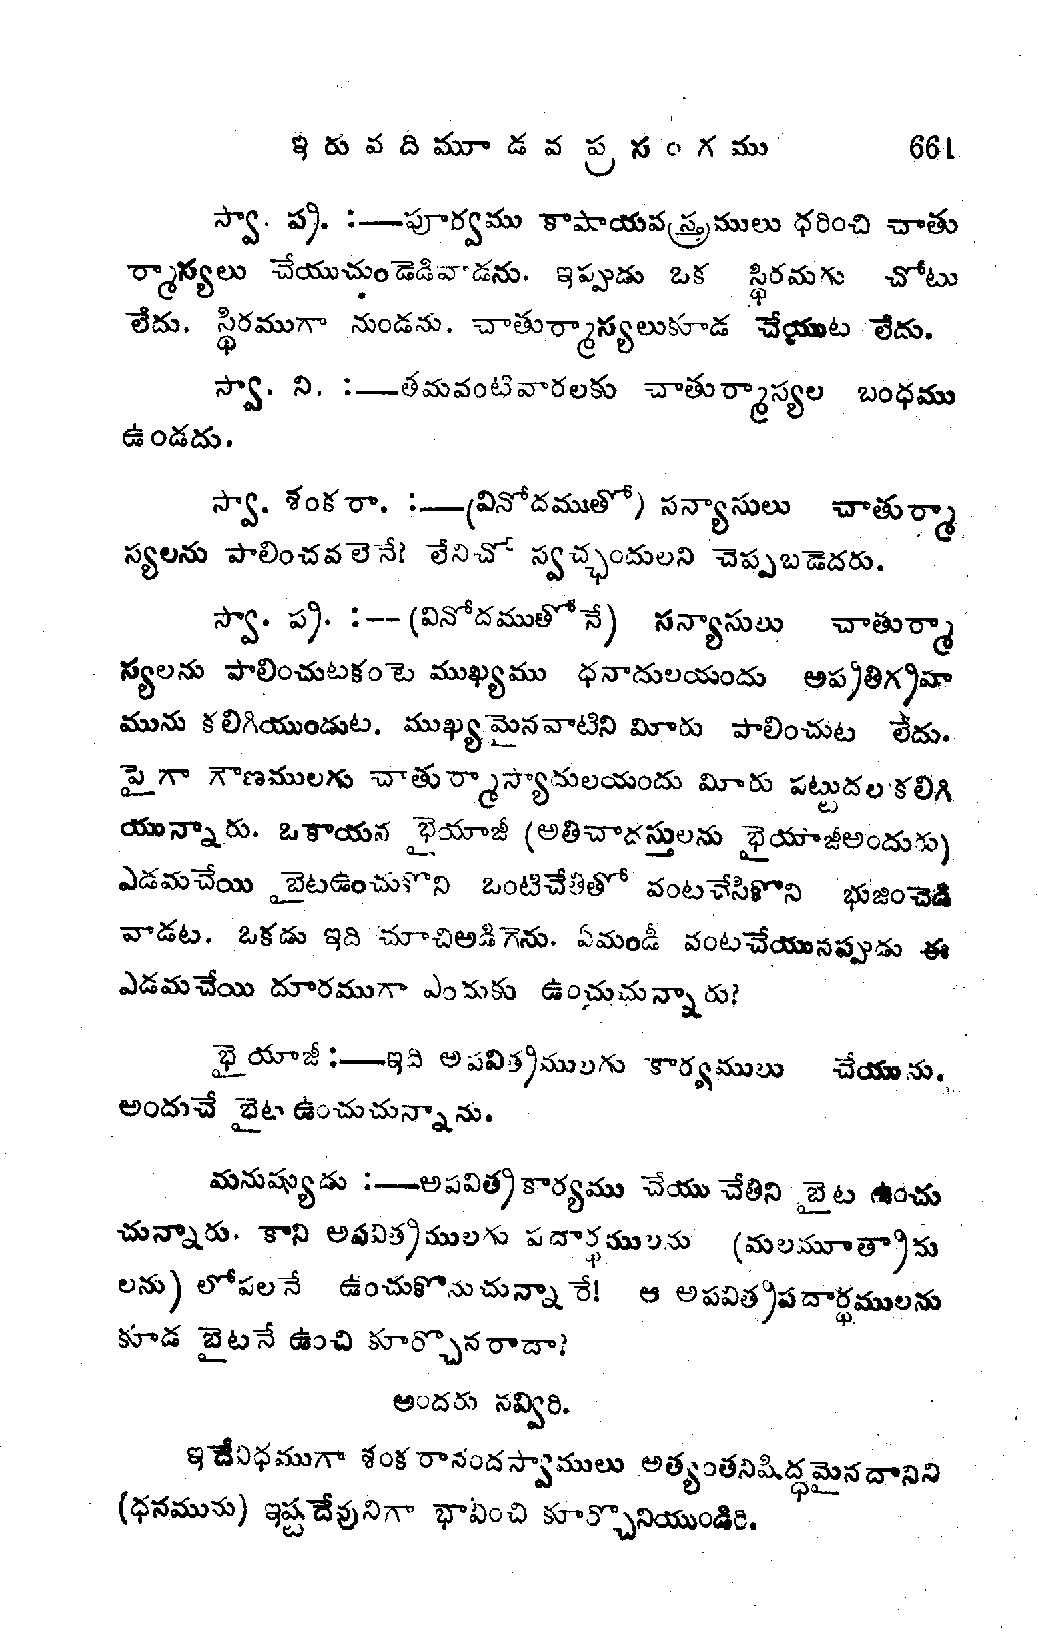 ఇరువదిమూడవ ప్రసంగము 661
స్వా. ప్రి. :—పూర్వము కాషాయవస్త్రములు ధరించి చాతు
ర్మాస్యలు చేయుచుండెడివాడను. ఇప్పుడు ఒక స్థిరమగు చోటు
లేదు. స్థిరముగా నుండను. చాతుర్మాస్యలుకూడ చేయుట లేదు.
స్వా. ని. :—తమవంటివారలకు చాతుర్మాస్యల బంధము
ఉండదు.
స్వా. శంకరా. :—(వినోదముతో) సన్యాసులు చాతుర్మా
స్యలను పాలించవలెనే! లేనిచో స్వచ్ఛందులని చెప్పబడెదరు.
స్వా. ప్రి. :—(వినోదముతోనే) సన్యాసులు చాతుర్మా
స్యలను పాలించుటకంటె ముఖ్యము ధనాదులయందు అప్రతిగ్రహ
మును కలిగియుండుట. ముఖ్యమైనవాటిని మీరు పాలించుట లేదు.
పైగా గౌణములగు చాతుర్మాస్యాదులయందు మీరు పట్టుదల కలిగి
యున్నారు. ఒకాయన భైయాజీ (అతిచాదస్తులను భైయాజీఅందురు)
ఎడమచేయి బైటఉంచుకొని ఒంటిచేతితో వంటచేసికొని భుజించెడి
వాడట. ఒకడు ఇది చూచిఅడిగెను. ఏమండీ వంటచేయునప్పుడు ఈ
ఎడమచేయి దూరముగా ఎందుకు ఉంచుచున్నారు?
భైయాజీ :—ఇది అపవిత్రములగు కార్యములు చేయును.
అందుచే బైట ఉంచుచున్నాను.
మనుష్యుడు :—అపవిత్రకార్యము చేయు చేతిని బైట ఉంచు
చున్నారు. కాని అపవిత్రములగు పదార్థములను (మలమూత్రాను
లను) లోపలనే ఉంచుకొనుచున్నారే! ఆ అపవిత్రపదార్థములను
కూడ బైటనే ఉంచి కూర్చొనరాదా?
అందరు నవ్విరి.
ఇదేవిధముగా శంకరానందస్వాములు అత్యంతనిషిద్ధమైనదానిని
(ధనమును) ఇష్టదేవునిగా భావించి కూర్చొనియుండిరి.